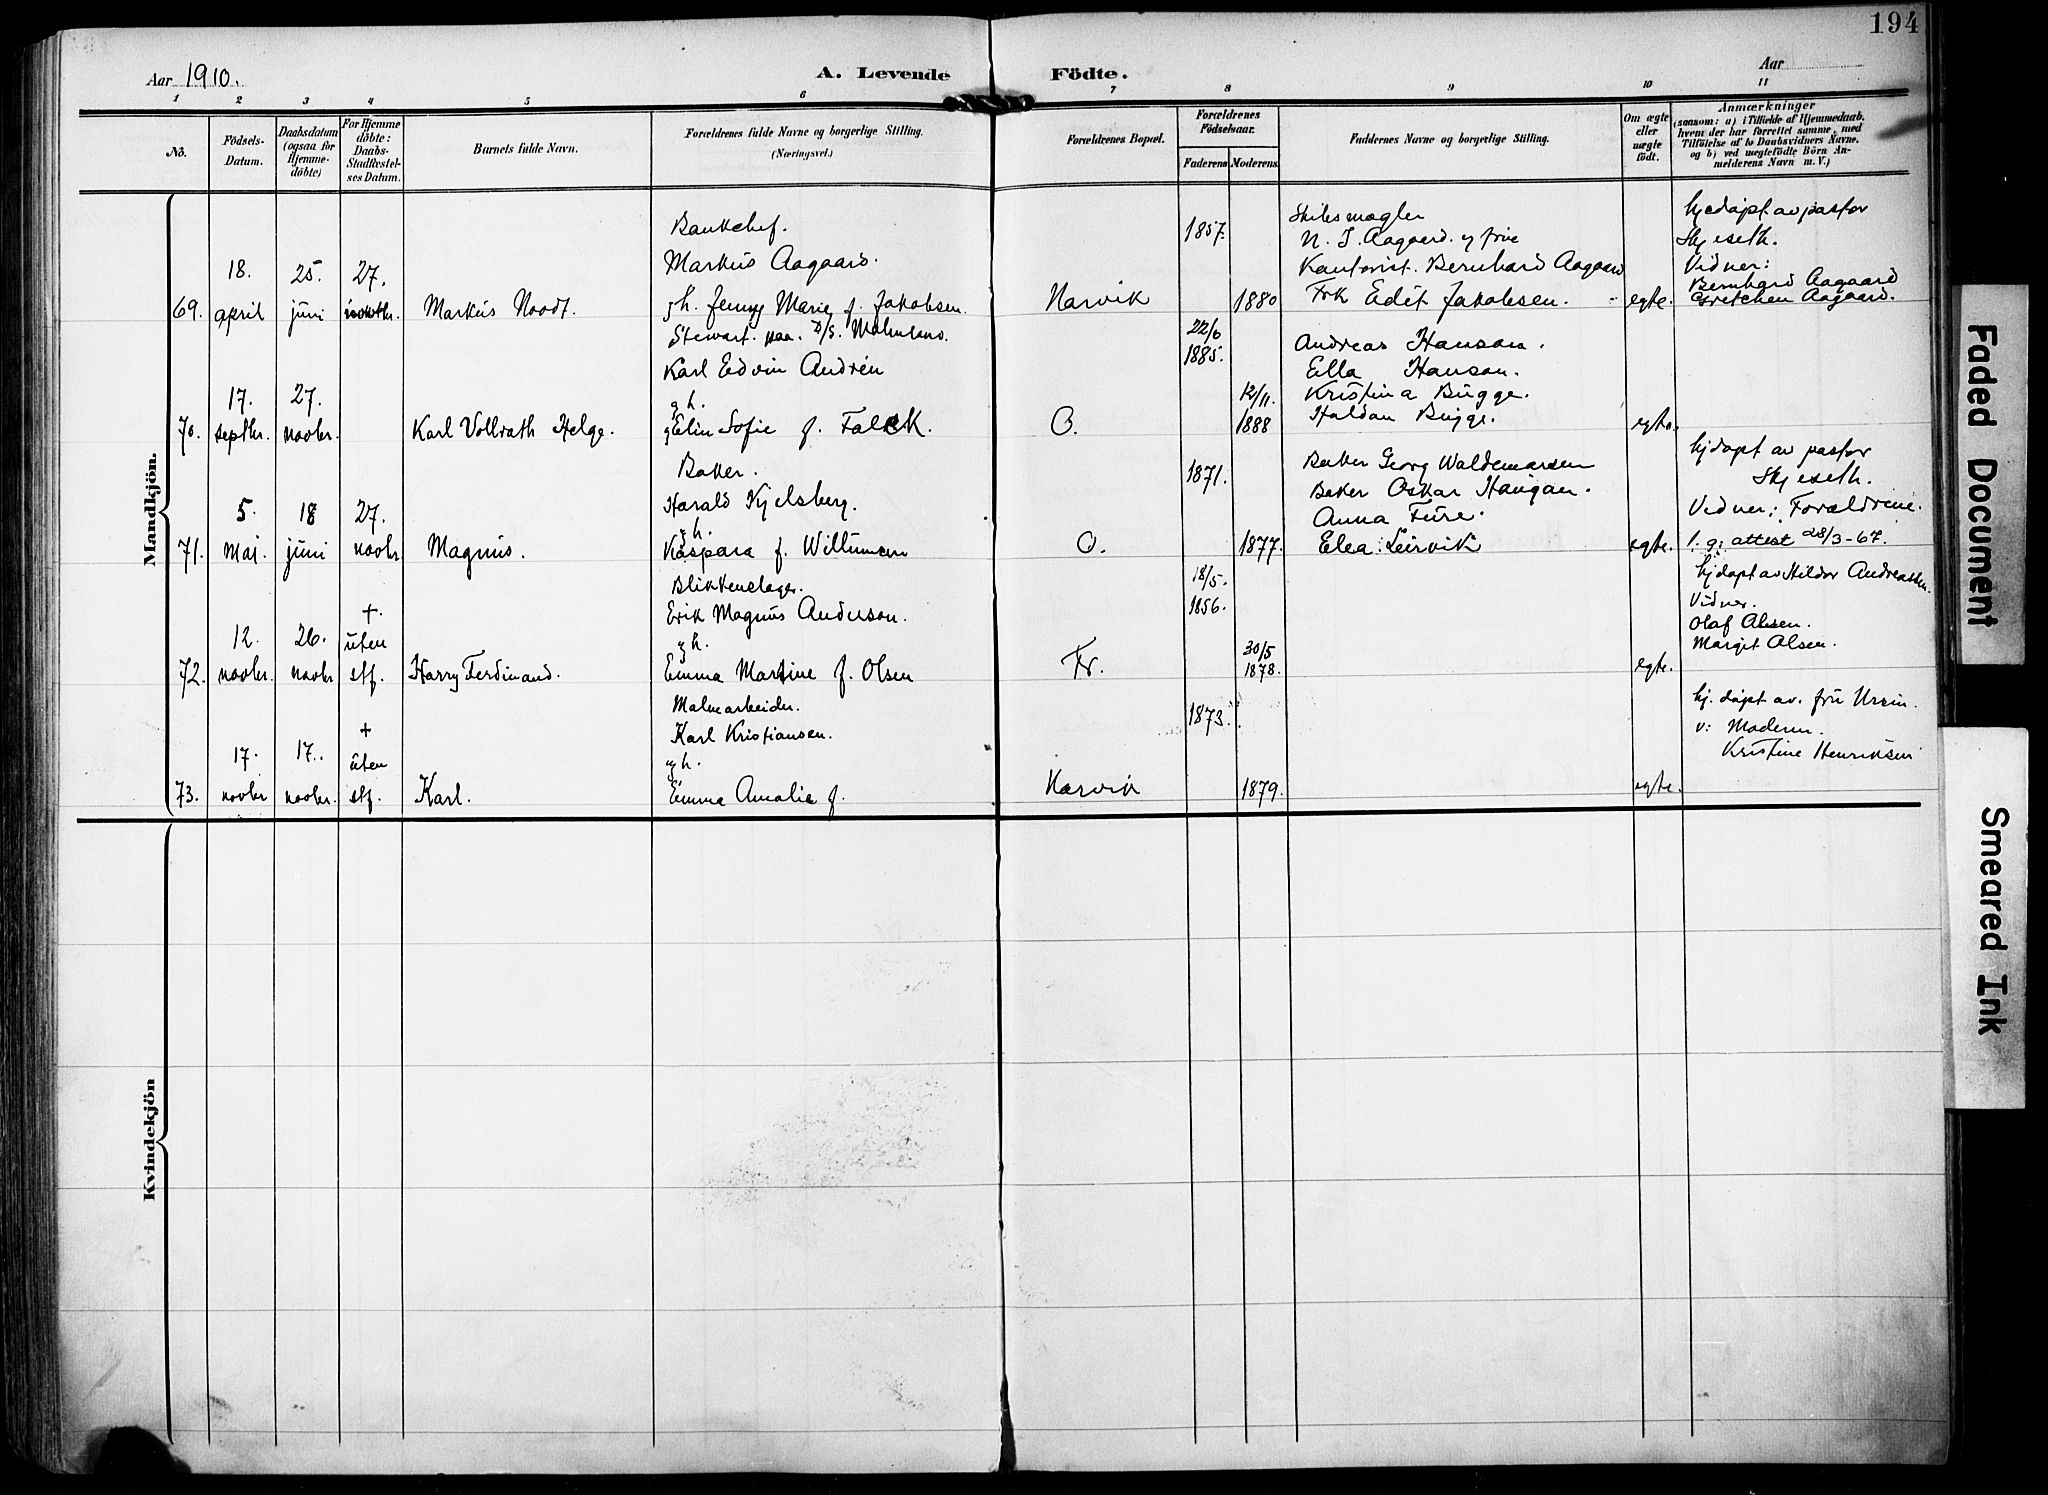 194
Aar 1910.
A. Levende Födte.
Aar
1 2 3 4 5 6 7 8 9 10 11
No.
Födsels-Datum.
Daabsdatum (ogsaa for Hjemme-döbte)
For Hjemme döbte: Daabs-Stadfæstel-ses Datum.
Barnets fulde Navn.
Forældrenes fulde Navne og borgerlige Stilling.
(Næringsvei.)
Forældrenes Bopæl.
Forældrenes Födselsaar.
Faderens Moderens
Faddernes Navne og borgerlige Stilling.
Om ægte eller uægte födt.
Anmærkninger
(saasom: a) i Tilfælde af Hjemmedaab, hvem der har forrettet samme, med Tilföielse af to Daabsvidners Navne, og b) ved uægtefödte Börn Anmelderens Navn m. V.)
Mandkjön.
69. 18. april
25. juni
27. novbr.
Markus Noodt.
Bankchef.
Markus Aagaard.
g h. Jenny Marie f. Jakobsen.
Narvik
1857.
1880
Skibsmægler
N. S. Aagaard. og frue
Kontorist. Bernhard Aagaard
Frk Edit Jakobsen.
egte.
hjedøpt av pastor
Skjeseth.
Vidner:
Bernhard Aagaard
Gretchen Aagaard.
70. 17. septbr.
27. novbr.
Karl Vollrath Helge.
Stewart. paa. D/S. Malmland.
Karl Edvin Andrén
g h.
Elin Sofie f. Falck.
O.
22/6 1885.
12/11. 1888
Andreas Hanson.
Ella Hanson.
Kristina Bugge.
Haldan Bugge.
egte.
71. 5. Mai
18 juni
27. novbr
Magnus.
Baker.
Harald Kjelsberg.
g h.
Kaspara f. Willumsen
O.
1871.
1877.
Baker Georg Waldemarsen
Baker Oskar Haugan.
Anna Fure.
Elea Leirvik
egte.
hjdøpt av pastor
Skjeseth.
Vidner: Forældrene.
l. g. attest 28/3-67.
72. 12. novbr.
26. novbr
+ uten stf.
Harry Ferdinand.
Blikkenslager.
Erik Magnus Anderson.
g h.
Emma Martine f. Olsen
Fr.
18/5. 1856.
30/5 1878.
egte.
hjdøpt av Hildor Andreassen.
Vidner.
Olaf Olsen.
Margit Olsen.
73. 17. novbr
17. novbr.
+ uten stf.
Karl.
Malmarbeider.
Karl Kristiansen.
g h.
Emma Amalie f.
Narvik
1873.
1879.
egte.
hj. døpt av. fru Ursin.
v: Moderen.
Kristine Henriksen
Kvindekjön
Faded Document
Smeared Ink